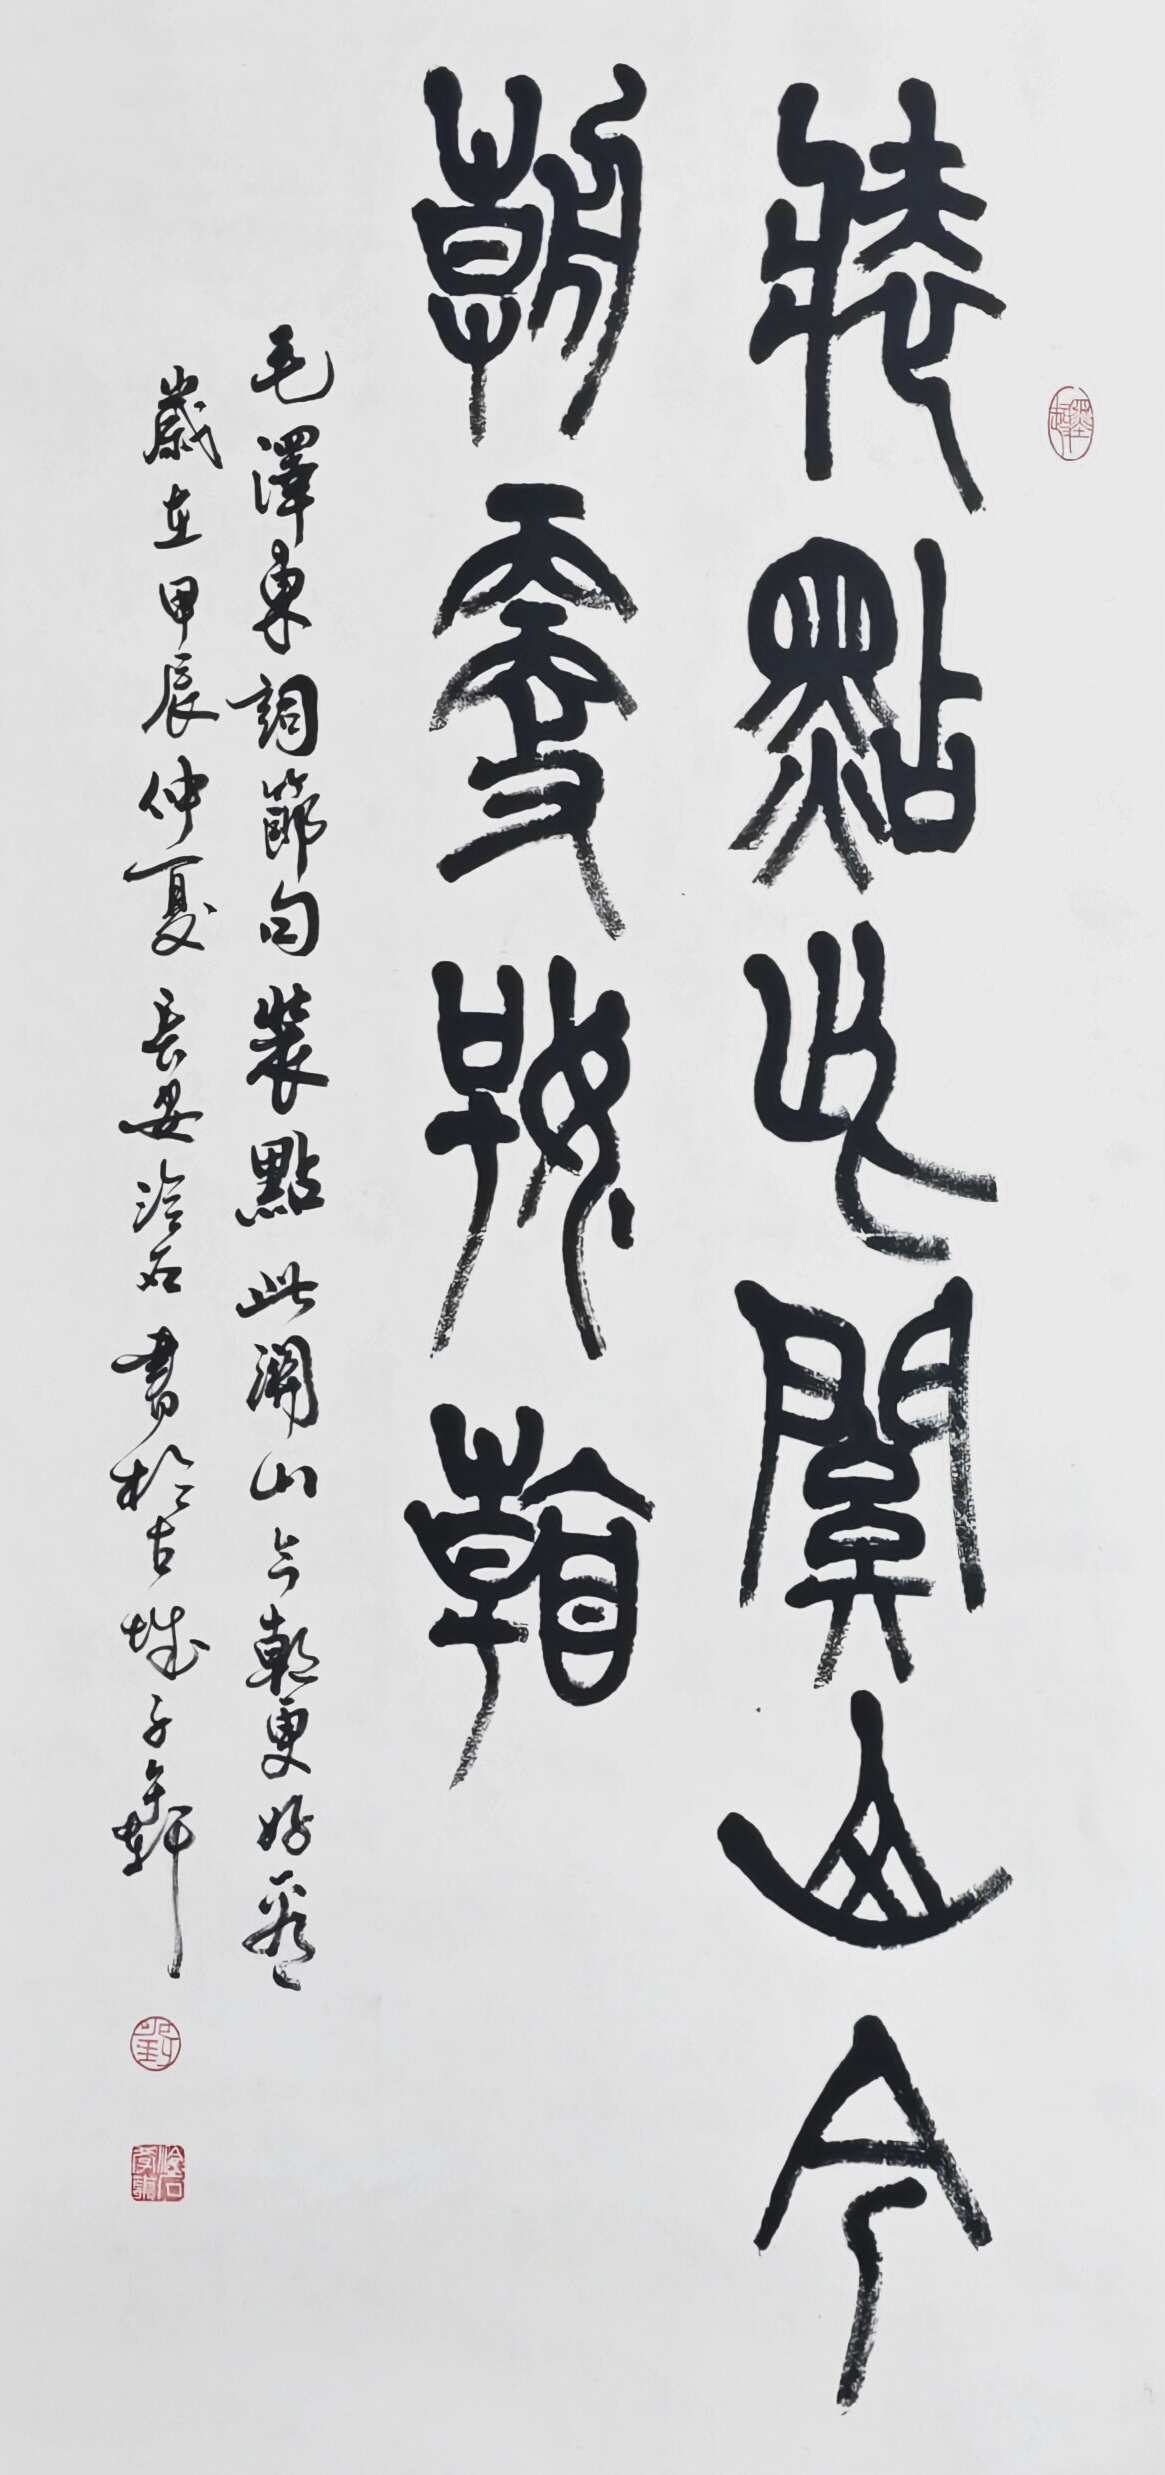 裝點此關山今
朝更好看
毛澤東詞節句裝點此關山今朝更好看
歲在甲辰仲夏長安冶石書於古城子午軒